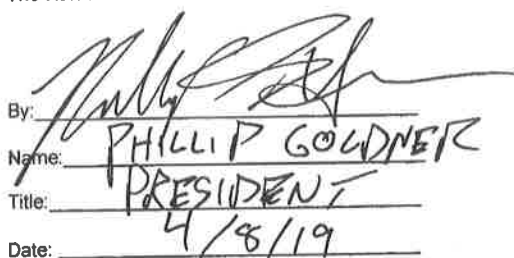 By:
Name: PHILLIP GOLDNER
Title: PRESIDENT
Date: 4/8/19